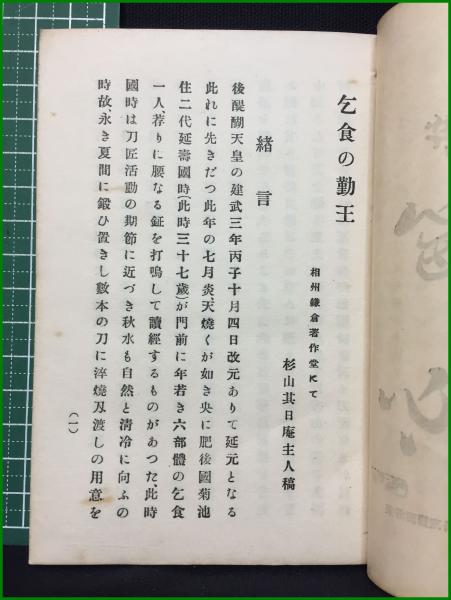 乞食の勤王
相州鎌倉著作堂にて
杉山其日庵主人稿
緒言
後醍醐天皇の建武三年丙子十月四日改元ありて延元となる
此れに先きだつ此年の七月炎天燒くが如き央に肥後國菊池
住二代延壽國時(此時三十七歲)が門前に年若き六部體の乞食
一人、若りに腰なる鉦を打鳴して讀經するものがあつた、此時
國時は刀匠活動の期節に近づき秋水も自然と清冷に向ふの
時故、永き夏間に鍛ひ置きし數本の刀に淬燒刄渡しの用意を
(一)